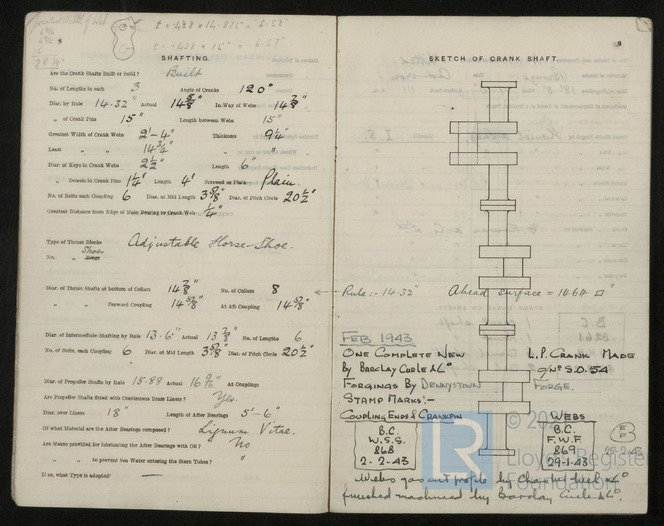 Greatest Width of Web
t = .438 × 14.875 = 6.52"
t = .438 × 15" = 6.57"
SHAFTING.
Are the Crank Shafts Built or Solid? Built
No. of Lengths in each 3 Angle of Cranks 120°
Diar. by Rule 14.32" Actual 14 5/8" In Way of Webs 14 7/8"
" of Crank Pins 15" Length between Webs 15"
Greatest Width of Crank Webs 2'-4" Thickness 9 1/4"
Least " " 14 3/4" " "
Diar. of Keys in Crank Webs 2 1/2" Length 6"
" Dowels in Crank Pins 1 1/4" Length 4" Screwed or Plain Plain
No. of Bolts each Coupling 6 Diar. at Mid Length 3 5/8" Diar. of Pitch Circle 20 1/2"
Greatest Distance from Edge of Main Bearing to Crank Web 1/4"
Type of Thrust Blocks Adjustable Horse-Shoe.
Shoes
No. " Rings
Diar. of Thrust Shafts at bottom of Collars 14 7/8" No. of Collars 8
" " Forward Coupling 14 5/8" At Aft Coupling 14 5/8"
Diar. of Intermediate Shafting by Rule 13.6" Actual 13 7/8" No. of Lengths 6
No. of Bolts, each Coupling 6 Diar. at Mid Length 3 5/8" Diar. of Pitch Circle 20 1/2"
Diar. of Propeller Shafts by Rule 15.88 Actual 16 At Couplings
Are Propeller Shafts fitted with Continuous Brass Liners? Yes.
Diar. over Liners 18" Length of After Bearings 5'-6"
Of what Material are the After Bearings composed? Lignum Vitae.
Are Means provided for lubricating the After Bearings with Oil? No
" " to prevent Sea Water entering the Stern Tubes? "
If so, what Type is adopted? —
9
SKETCH OF CRANK SHAFT.
Rule :- 14.32" Ahead surface = 1464 □"
FEB 1943
ONE COMPLETE NEW L.P. CRANK MADE
BY BARCLAY CURLE & Lo O/No S.O. 54
FORGINGS BY DENNYSTOWN FORGE.
STAMP MARKS:-
COUPLING ENDS & CRANKPIN WEBS
B.C.
W.S.S.
868
2-2-43
B.C.
F.W.F
869
29-1-43
© 20
LR
Lloyd's Register
Foundation
finished machined by Barclay Curle & Lo.